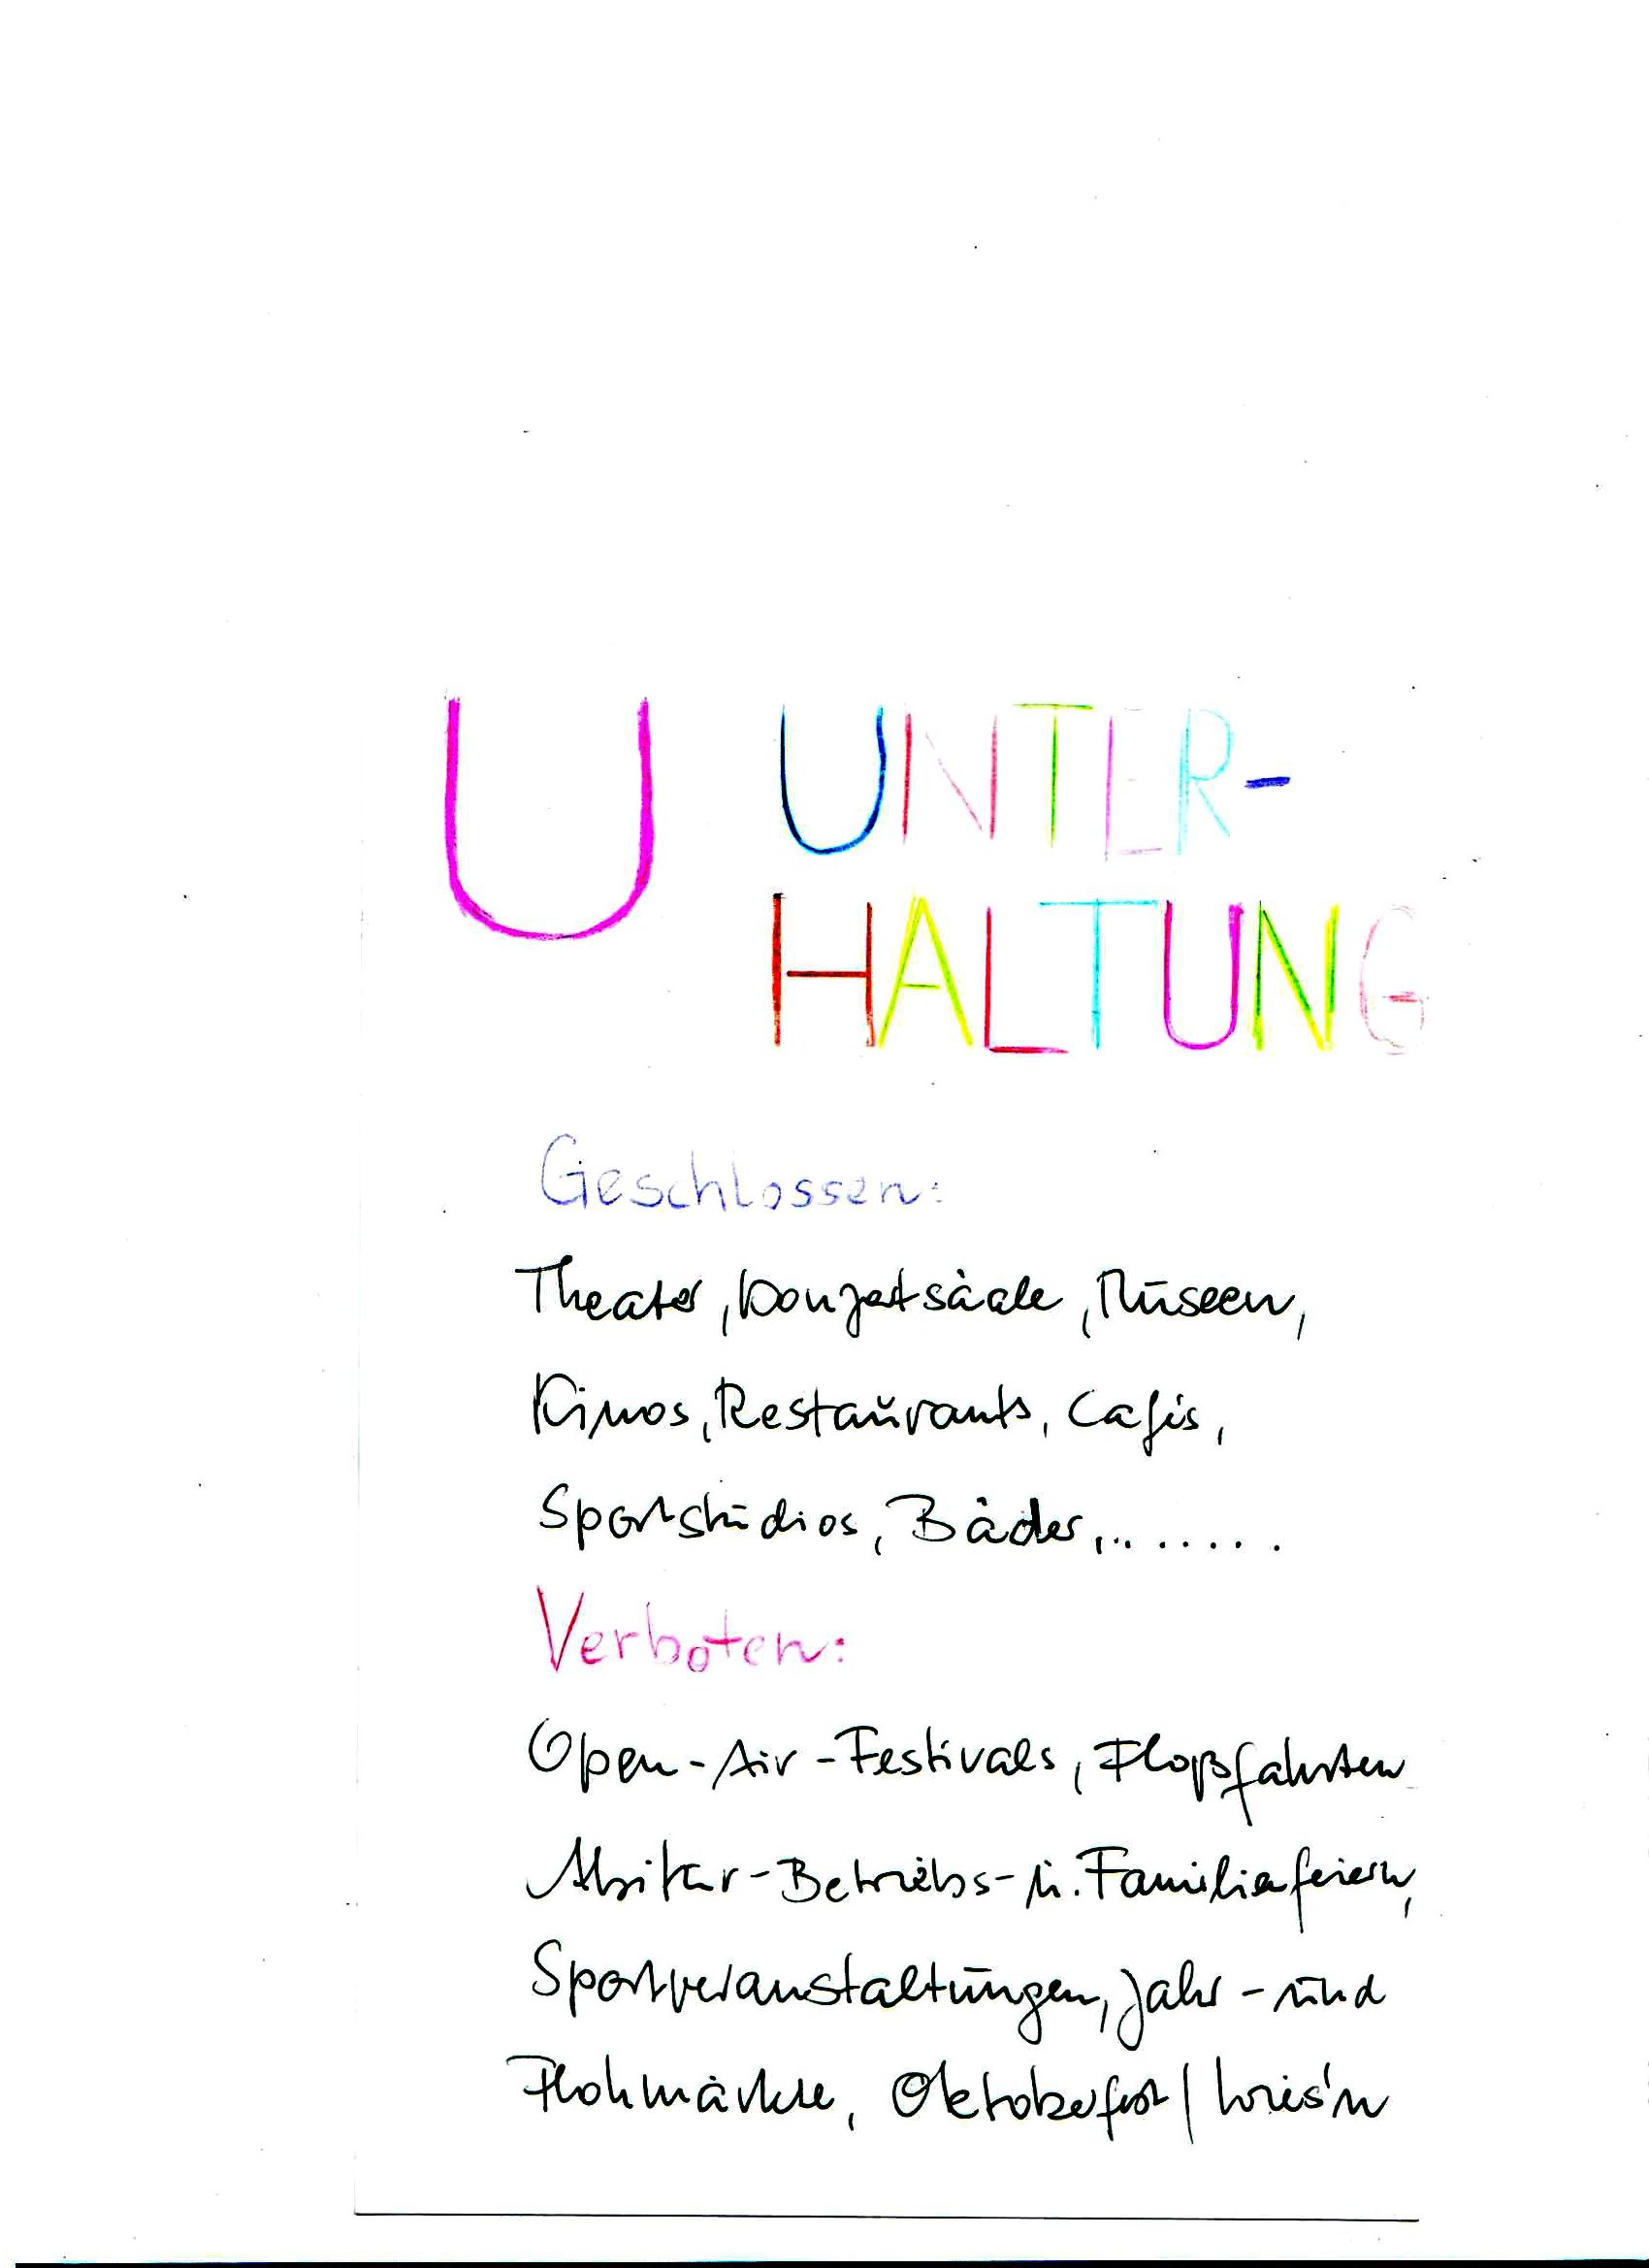 U UNTER-
HALTUNG
Geschlossen:
Theater, Konzertsäale, Museen,
Kinos, Restaurants, Cafés,
Sportstudios, Bäder,........
Verboten:
Open-Air-Festivals, Floßfahrten
Abitur-Betriebs-u. Familienfeiern,
Sportveranstaltungen, Jahr-und
Flohmärkte, Oktoberfest/Wies'n